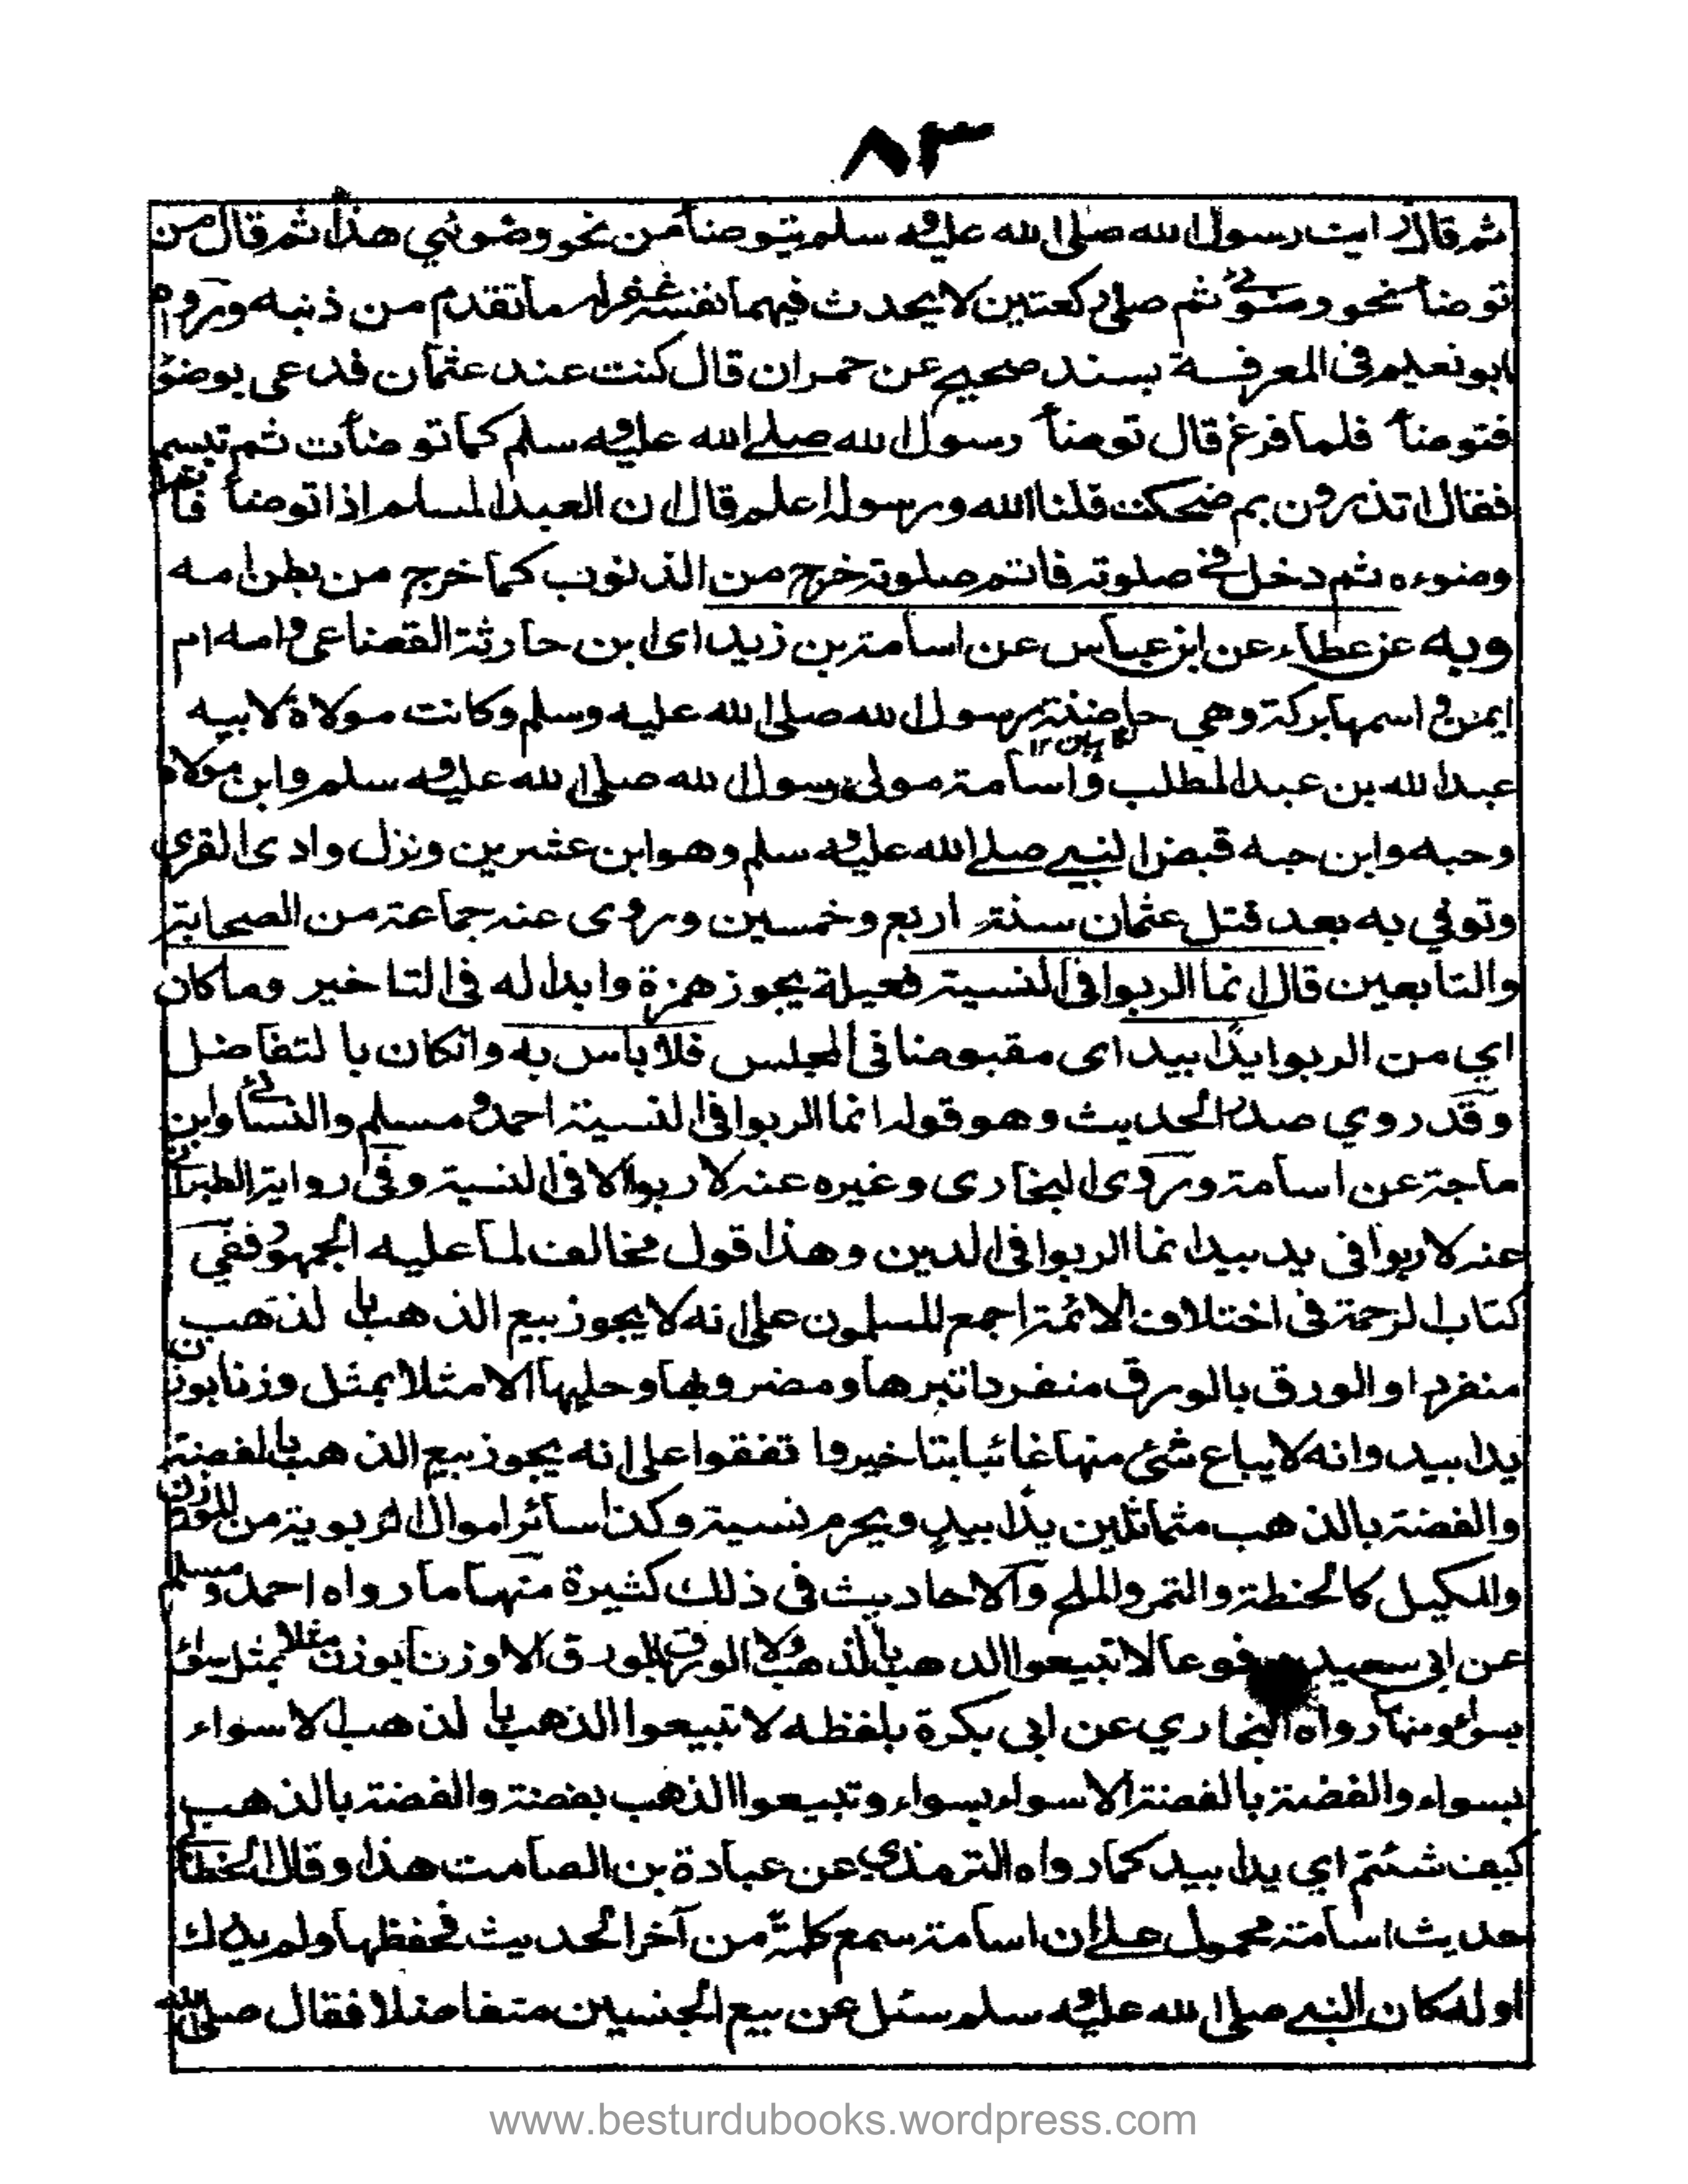 ٨٣
ثم قال رايت رسول الله صلى الله عليه و سلم يتوضأ من نحو وضوئي هذا ثم قال من
توضأ نحو وضوئي ثم صلى ركعتين لا يحدث فيهما نفسه غفر له ما تقدم من ذنبه وروى
ابو نعيم فى المعرفة بسند صحيح عن حمران قال كنت عند عثمان فدعى بوضؤ
فتوضأ فلما فرغ قال توضأ رسول الله صلى الله عليه و سلم كما توضأت ثم تبسم
فقال اتدرون بم ضحكت قلنا الله ورسوله اعلم قال ان العبد المسلم اذا توضأ فاتم
وضوءه ثم دخل في صلوته فاتم صلوته خرج من الذنوب كما خرج من بطن امه
وبه عن عطاء عن ابن عباس عن اسامة بن زيد اى ابن حارثة القضاعى وامه ام
ايمن و اسمها بركة وهي حاضنة رسول الله صلى الله عليه وسلم وكانت مولاة لابيه
عبد الله بن عبد المطلب واسامة مولى رسول الله صلى الله عليه و سلم وابن مولاه
وحبه وابن حبه قبض النبي صلى الله عليه و سلم وهو ابن عشرين ونزل وادى القرى
وتوفي به بعد قتل عثمان سنة اربع وخمسين وروى عنه جماعة من الصحابة
والتابعين قال انما الربوا فى النسية فعيلة يجوز همزة وابداله فى التاخير وماكان
اي من الربوا يدا بيد اى مقبوضا فى المجلس فلا باس به وانكان بالتفاضل
وقد روي صدر الحديث وهو قوله انما الربوا فى النسية احمد و مسلم والنسائي وابن
ماجة عن اسامة وروى البخارى وغيره عنه لا ربوا الا فى النسية وفى رواية الطبراني
عنه لا ربوا فى يد بيد انما الربوا فى الدين وهذا قول مخالف لما عليه الجمهور ففي
كتاب الرحمة فى اختلاف الائمة اجمع المسلمون على انه لا يجوز بيع الذهب بالذهب
منفردا والورق بالورق منفردا تبرها ومضروبها وحليها الا مثلا بمثل وزنا بوزن
يدا بيد وانه لا يباع شئ منها غائبا بتاخير واتفقوا على انه يجوز بيع الذهب بالفضة
والفضة بالذهب متماثلين يدًا بيدٍ ويحرم نسية وكذا سائر اموال الربوية من الموزون
والمكيل كالحنطة والتمر والملح والاحاديث فى ذلك كثيرة منها ما رواه احمد و مسلم
عن ابى سعيد مرفوعا لا تبيعوا الذهب بالذهب ولا الورق بالورق الا وزنا بوزن مثلا بمثل سواء
بسواء ومنها رواه البخاري عن ابى بكرة بلفظه لا تبيعوا الذهب بالذهب الا سواء
بسواء والفضة بالفضة الا سواء بسواء وتبيعوا الذهب بفضة والفضة بالذهب
كيف شئتم اي يدا بيد كما رواه الترمذي عن عبادة بن الصامت هذا وقال الخطابي
حديث اسامة محمول على ان اسامة سمع كلمة من آخر الحديث فحفظها ولم يدرك
اوله كان النبي صلى الله عليه و سلم سئل عن بيع الجنسين متفاضلا فقال صلى الله
www.besturdubooks.wordpress.com